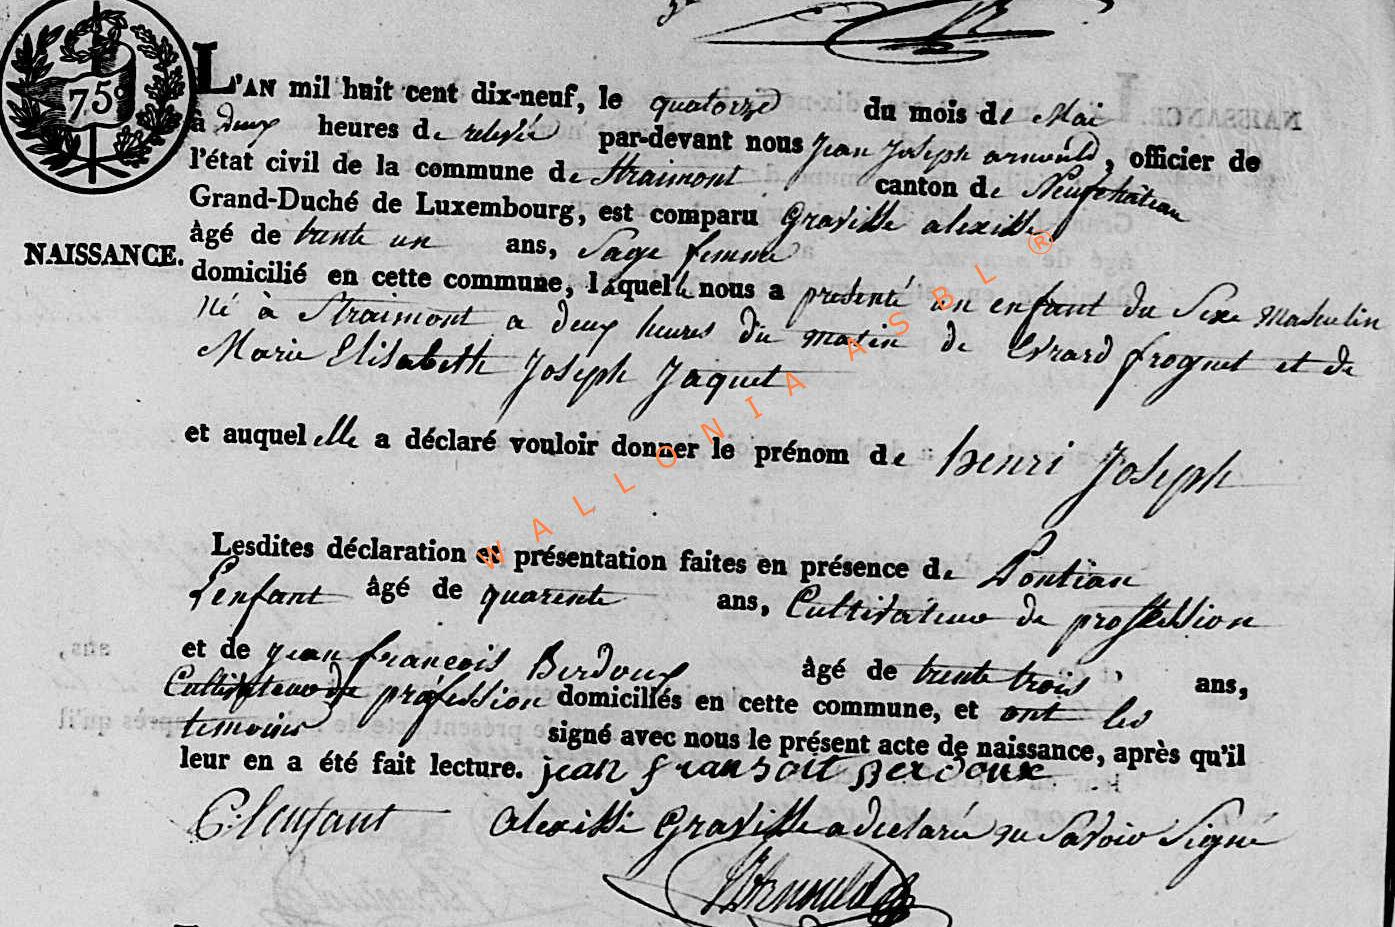 75c
L'AN mil huit cent dix-neuf, le quatorze du mois de Mai
à deux heures de relevée par-devant nous Jean Joseph arnould, officier de
l'état civil de la commune de Straimont canton de Neufchâteau
Grand-Duché de Luxembourg, est comparu Graville alexille
NAISSANCE. âgé de trente un ans, Sage femme
domicilié en cette commune, laquelle nous a presenté un enfant du Sexe masculin
né à Straimont a deux heures du matin de Evrard frognet et de
Marie Elisabeth Joseph Jaquet
et auquel elle a déclaré vouloir donner le prénom de henri Joseph
Lesdites déclaration et présentation faites en présence de Pontian
Lenfant âgé de quarente ans, Cultivateur de proffession
et de jean françois Berdoux âgé de trente trois ans,
Cultivateur de proffession domiciliés en cette commune, et ont les
temoins signé avec nous le présent acte de naissance, après qu'il
leur en a été fait lecture. jean fransoit Berdoux
P: lenfant alexille Graville a declarée ne Savoir Signé
Arnould
WALLONIA ASBL ®